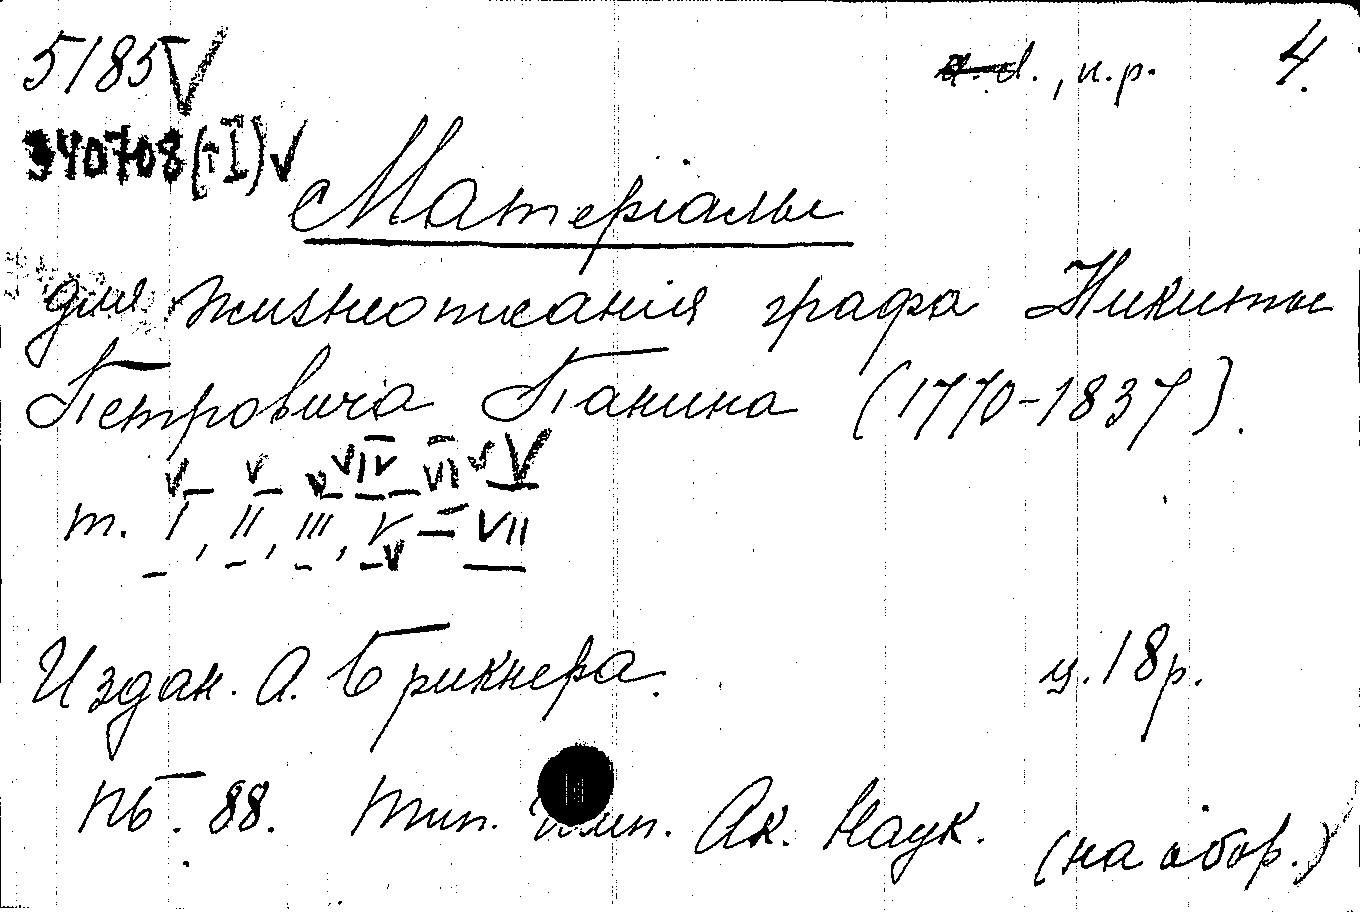 5185 V
д., и.р. 4.
340708 (т I) V
Матеріалы
для жизнеописанія графа Никиты
Петровича Панина (1770-1837).
IV VI V
т. I, II, III, V — VII
Издан. А. Брикнера. ц. 18 р.
Пб. 88. Тип. Имп. Ак. Наук. (на обор.)